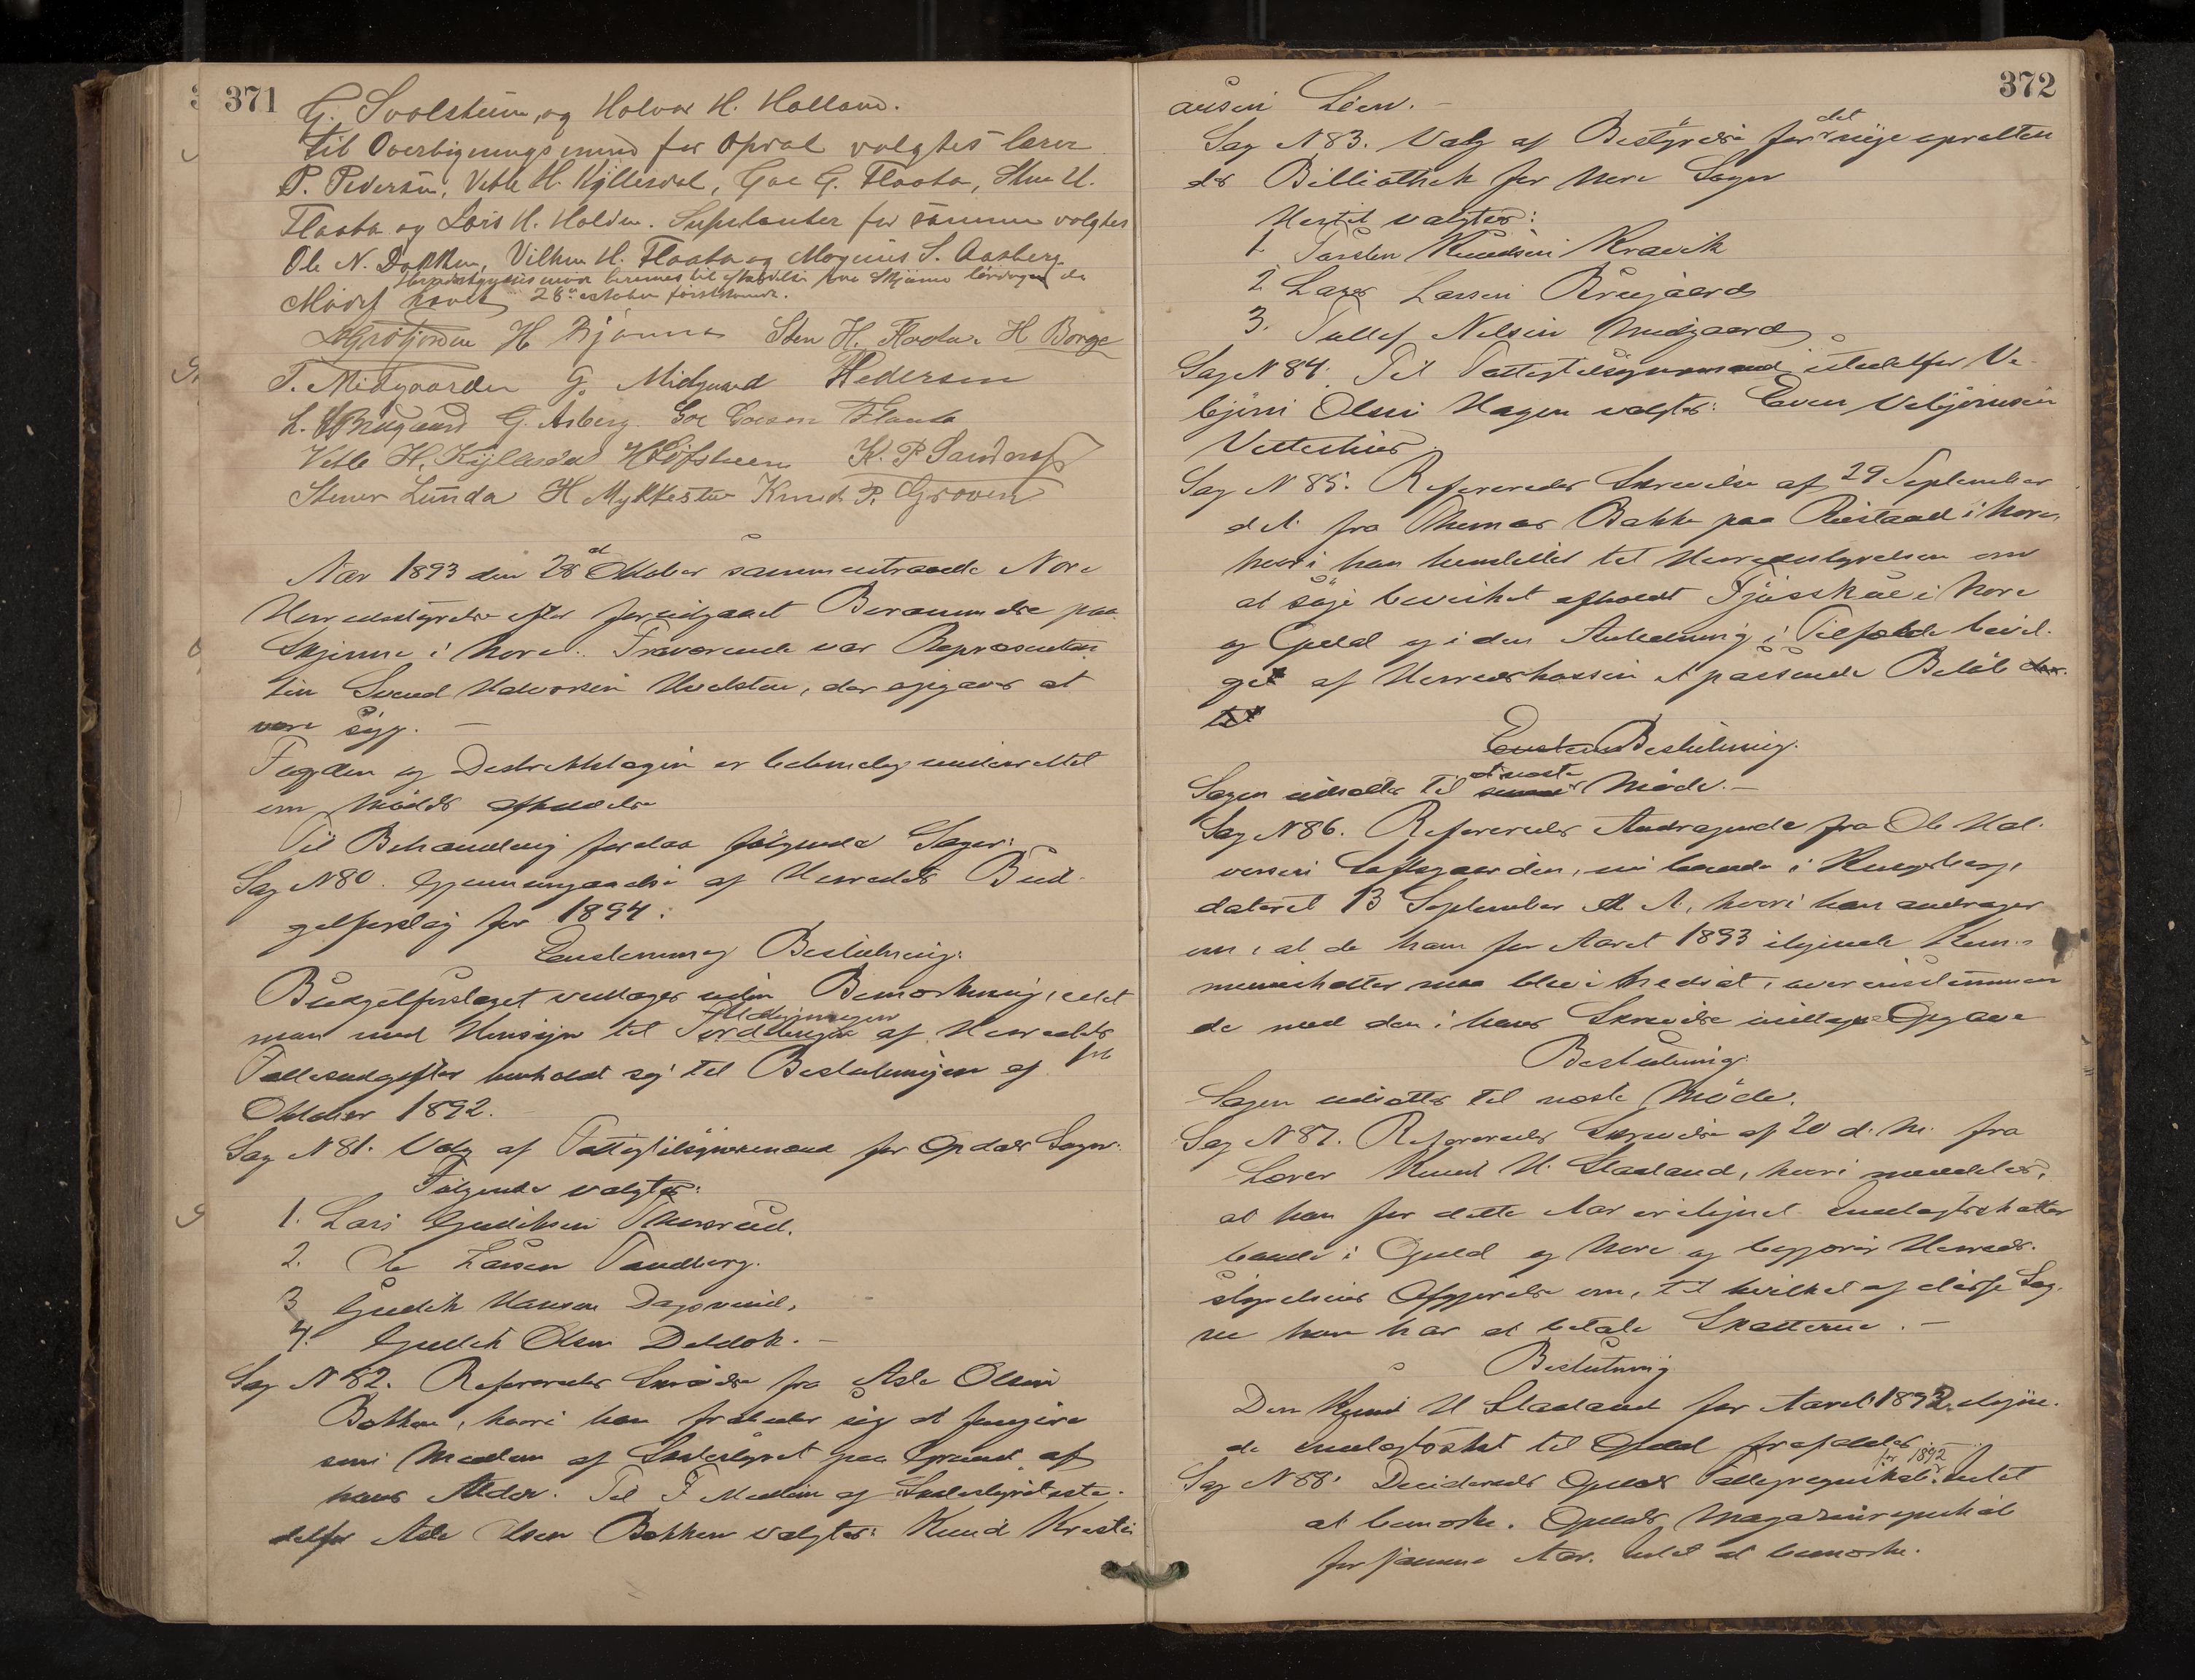 371
G. Svalsteim, og Halvor H. Halland.
til Overligningsmænd for Opdal valgtes lærer
P. Pedersen, Vetle H. Kyllesdal, Goe G. Flaata, Sten H.
Flaata og Lars H. Holden. Suplianter for samme valgtes
Ole N. Dokken, Vilhm H. Flaata og Magnus S. Aasberg.
Herredsstyresmøde berammes til afholdelse paa Skjønne lørdagen den
28de october førstkomende.
Mødet hævet
H. Bjønnes Sten H. Flaata. H Borge
T. Midgaarden G. Midgaard PPedersen
G. Asberg. Goe Goeson Flaata
Vetle H. Kyllesdal K. P. Sandness
Stener Lunda H Mykkestu Knud P. Groven
Aar 1893 den 28de Oktober sammentraadte Nore
Herredsstyrelse efter foreudgaaet Berammelse paa
Skjønne i Nore. Fraværende var Repræsentan
ten Svend Halvorsen Hvalsten, der opgaves at
være syg. —
Fogden og Distriktslægen er betimelig underrettet
om Mødets afholdelse
Til Behandling forelaa følgende Sager:
Sag N 80. Gjennemgaaelse af Herredets Bud-
getforslag for 1894.
Enstemmig Beslutning:
Budgetforslaget vedtages uden Bemærkning, idet
man med Hensyn til Fordelingen af Herredets
Fællesudgifter henholdt sig til Beslutningen af
Oktober 1892.
Sag N 81. Valg af Fattigtilsynsmænd for Opdals Sogn.
Følgende valgtes:
1. Lars Gudiksen Thorsrud.
2. Ole Larsen Tandberg.
3 Gudik Hansen Dagsvend.
4. Gudik Olsen Deldok. —
Sag N 82. Refereredes Skrivelse fra Asle Olsen
Bakken, hvori han frabeder sig at fungere
som Medlem af Skolestyret paa Grund af
hans Alder. Til Medlem af Skolestyret iste-
detfor Asle Olsen Bakken valgtes: Knud Kristi
372
ansen Løen. —
Sag N 83. Valg af Bestyrelse for det nyeopretten
des Bibliothek for Nore Sogn
Hertil valgtes:
1. Torsten Knudsen Kravik
2. Lars Larsen Brugaard
3. Tollef Nelsen Midgaard
Sag N 84. Til Fattigtilsynsmand istedetfor Ve-
bjørn Olsen Hagen valgtes: Even Vebjørnsen
Vetterhus
Sag N 85. Refereredes Skrivelse af 29 September
d. A. fra Gunnar Bakke paa Rustaad i Nore,
hvori han henstiller til Herredsstyrelsen om
at søge bevirket afholdt Fjøsskue i Nore
og Opdal og i den Anledning i Tilfælde bevil-
get af Herredskassen et passende Beløb der-
til
Enstem Beslutning.
Sagen udsættes til næste Møde. —
Sag N 86. Refereredes Andragende fra Ole Hal-
vorsen Loftsgaarden, nu boende i Kongsberg,
dateret 13 September d. A., hvori han andrager
om, at de ham for Aaret 1893 ilignede Kom-
muneskatter maa blive nedsat, overensstemmen
de med den i hans Skrivelse indtagne Opgave
Beslutning:
Sagen udsættes til næste Møde.
Sag N 87. Refereredes Skrivelse af 20 d. M. fra
Lærer Knud H. Staaland, hvori meddeles,
at han for dette Aar er ilignet Indtægtsskatter
baade i Opdal og Nore og begjærer Herreds-
styrelsens Afgjørelse om, til hvilket af disse Sog-
ne han har at betale Skatterne. —
Beslutning
Den Knud H Staaland for Aaret 1893 iligne-
de Indtægtsskat til Opdal frafaldes.
Sag N 88. Decideredes Opdals Fattigregnskab for 1892. Intet
at bemærke. Opdals Magasinregnskab
for samme Aar. Intet at bemærke.